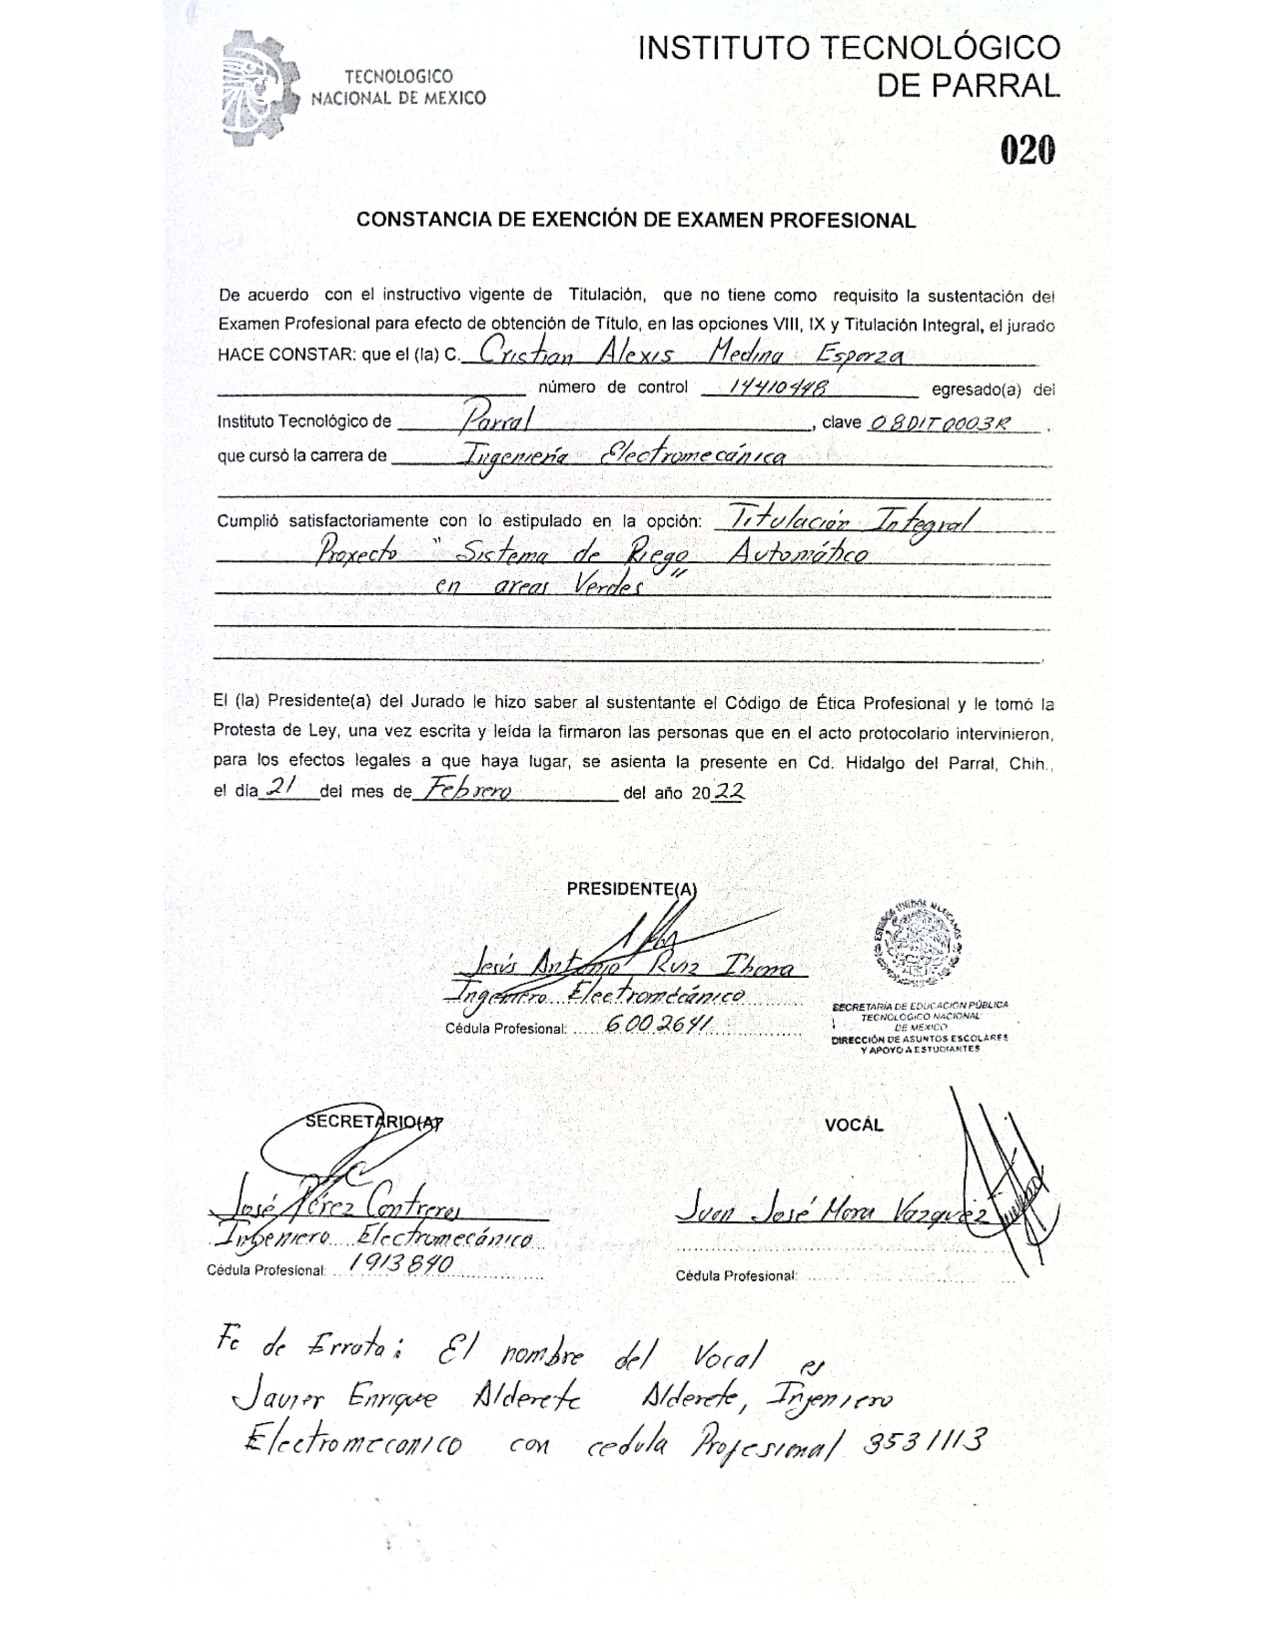 TECNOLOGICO
NACIONAL DE MEXICO
INSTITUTO TECNOLÓGICO
DE PARRAL
020
CONSTANCIA DE EXENCIÓN DE EXAMEN PROFESIONAL
De acuerdo con el instructivo vigente de Titulación, que no tiene como requisito la sustentación del
Examen Profesional para efecto de obtención de Título, en las opciones VIII, IX y Titulación Integral, el jurado
HACE CONSTAR: que el (la) C. Cristian Alexis Medina Esparza
número de control 14410448 egresado(a) del
Instituto Tecnológico de Parral, clave 08DIT0003R.
que cursó la carrera de Ingeniería Electromecánica
Cumplió satisfactoriamente con lo estipulado en la opción: Titulación Integral
Proyecto "Sistema de Riego Automático
en areas Verdes"
El (la) Presidente(a) del Jurado le hizo saber al sustentante el Código de Ética Profesional y le tomó la
Protesta de Ley, una vez escrita y leída la firmaron las personas que en el acto protocolario intervinieron,
para los efectos legales a que haya lugar, se asienta la presente en Cd. Hidalgo del Parral, Chih.,
el día 21 del mes de Febrero del año 2022
PRESIDENTE(A)
Jesús Antonio Ruiz
Ingeniero Electromecánico
Cédula Profesional: 6002641
ESTADOS UNIDOS MEXICANOS
SECRETARÍA DE EDUCACIÓN PÚBLICA
TECNOLÓGICO NACIONAL
DE MÉXICO
DIRECCIÓN DE ASUNTOS ESCOLARES
Y APOYO A ESTUDIANTES
SECRETARIO(A)
José Pérez Contreras
Ingeniero Electromecánico
Cédula Profesional: 1913840
VOCAL
Juan José Mora Vázquez
Cédula Profesional:
Fe de Errata: El nombre del Vocal es
Javier Enrique Alderete Alderete, Ingeniero
Electromecanico con cedula Profesional 3531113